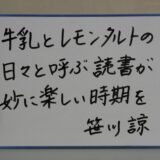 牛乳とレモンタルトの
日々と呼ぶ読書が
妙に楽しい時期を
笹川諒